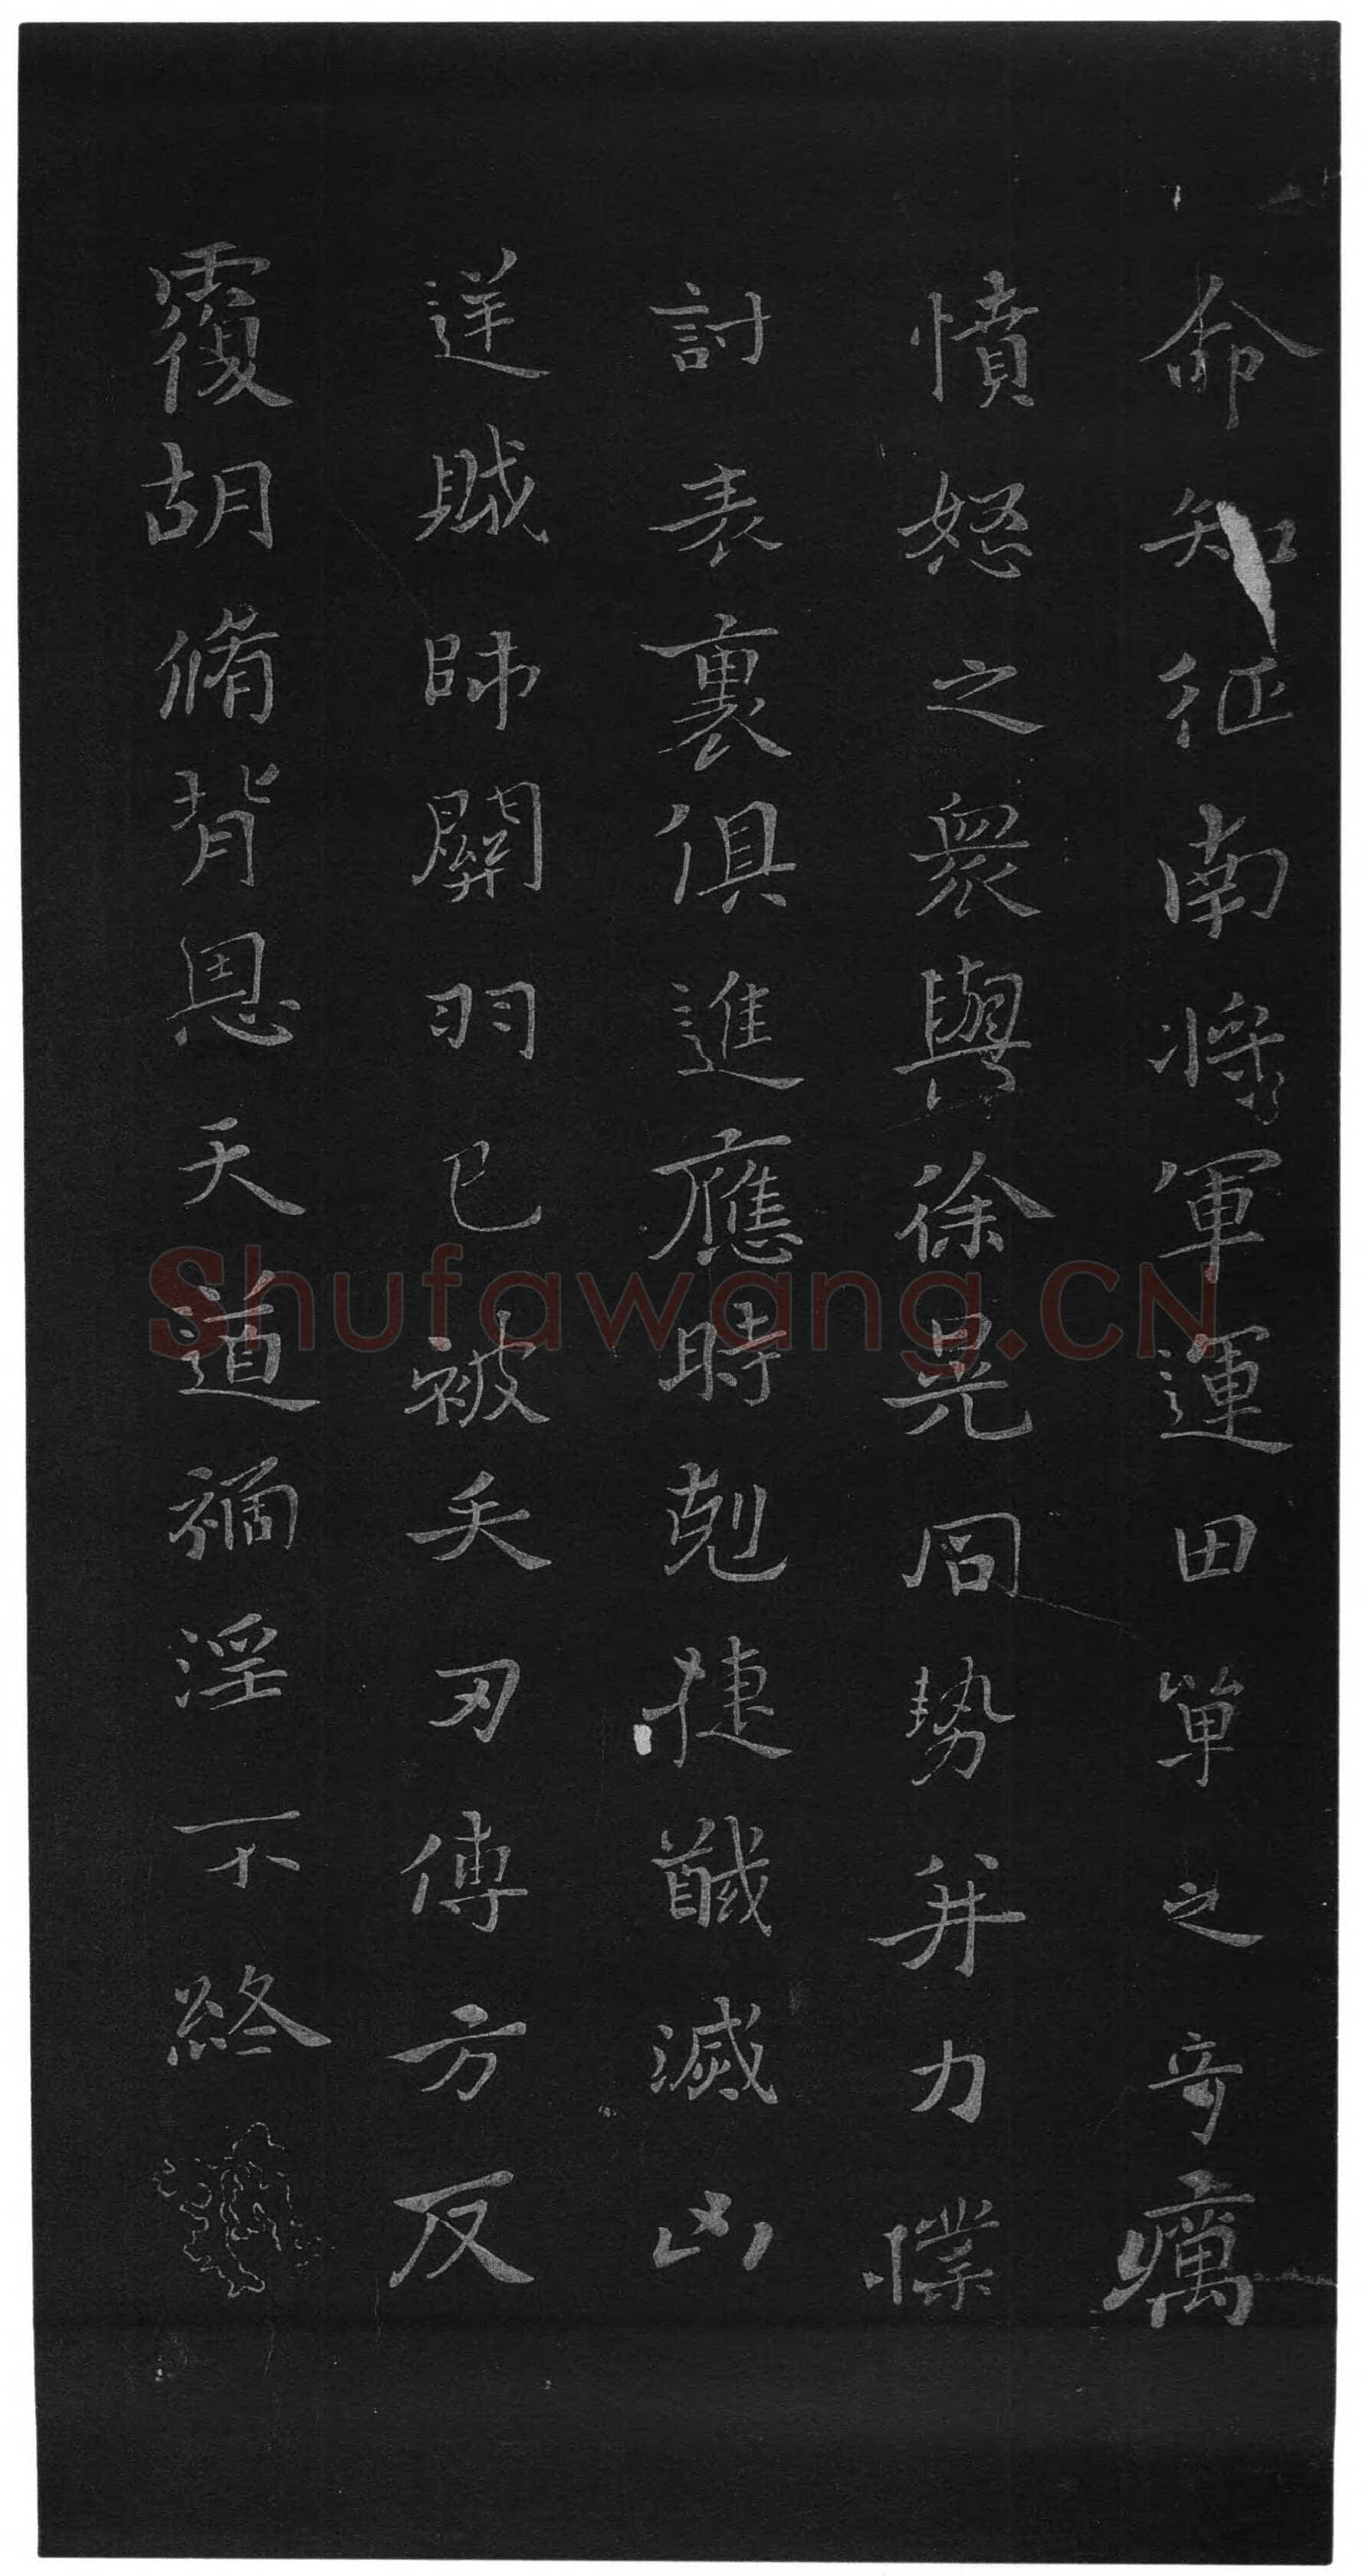 命知征南將軍運田單之奇厲
憤怒之衆與徐晃同勢并力撲
討表裏俱進應時剋捷馘滅凶
逆賊帥關羽已被矢刃傅方反
覆胡脩背恩天道禍淫不終
Shufawang.CN